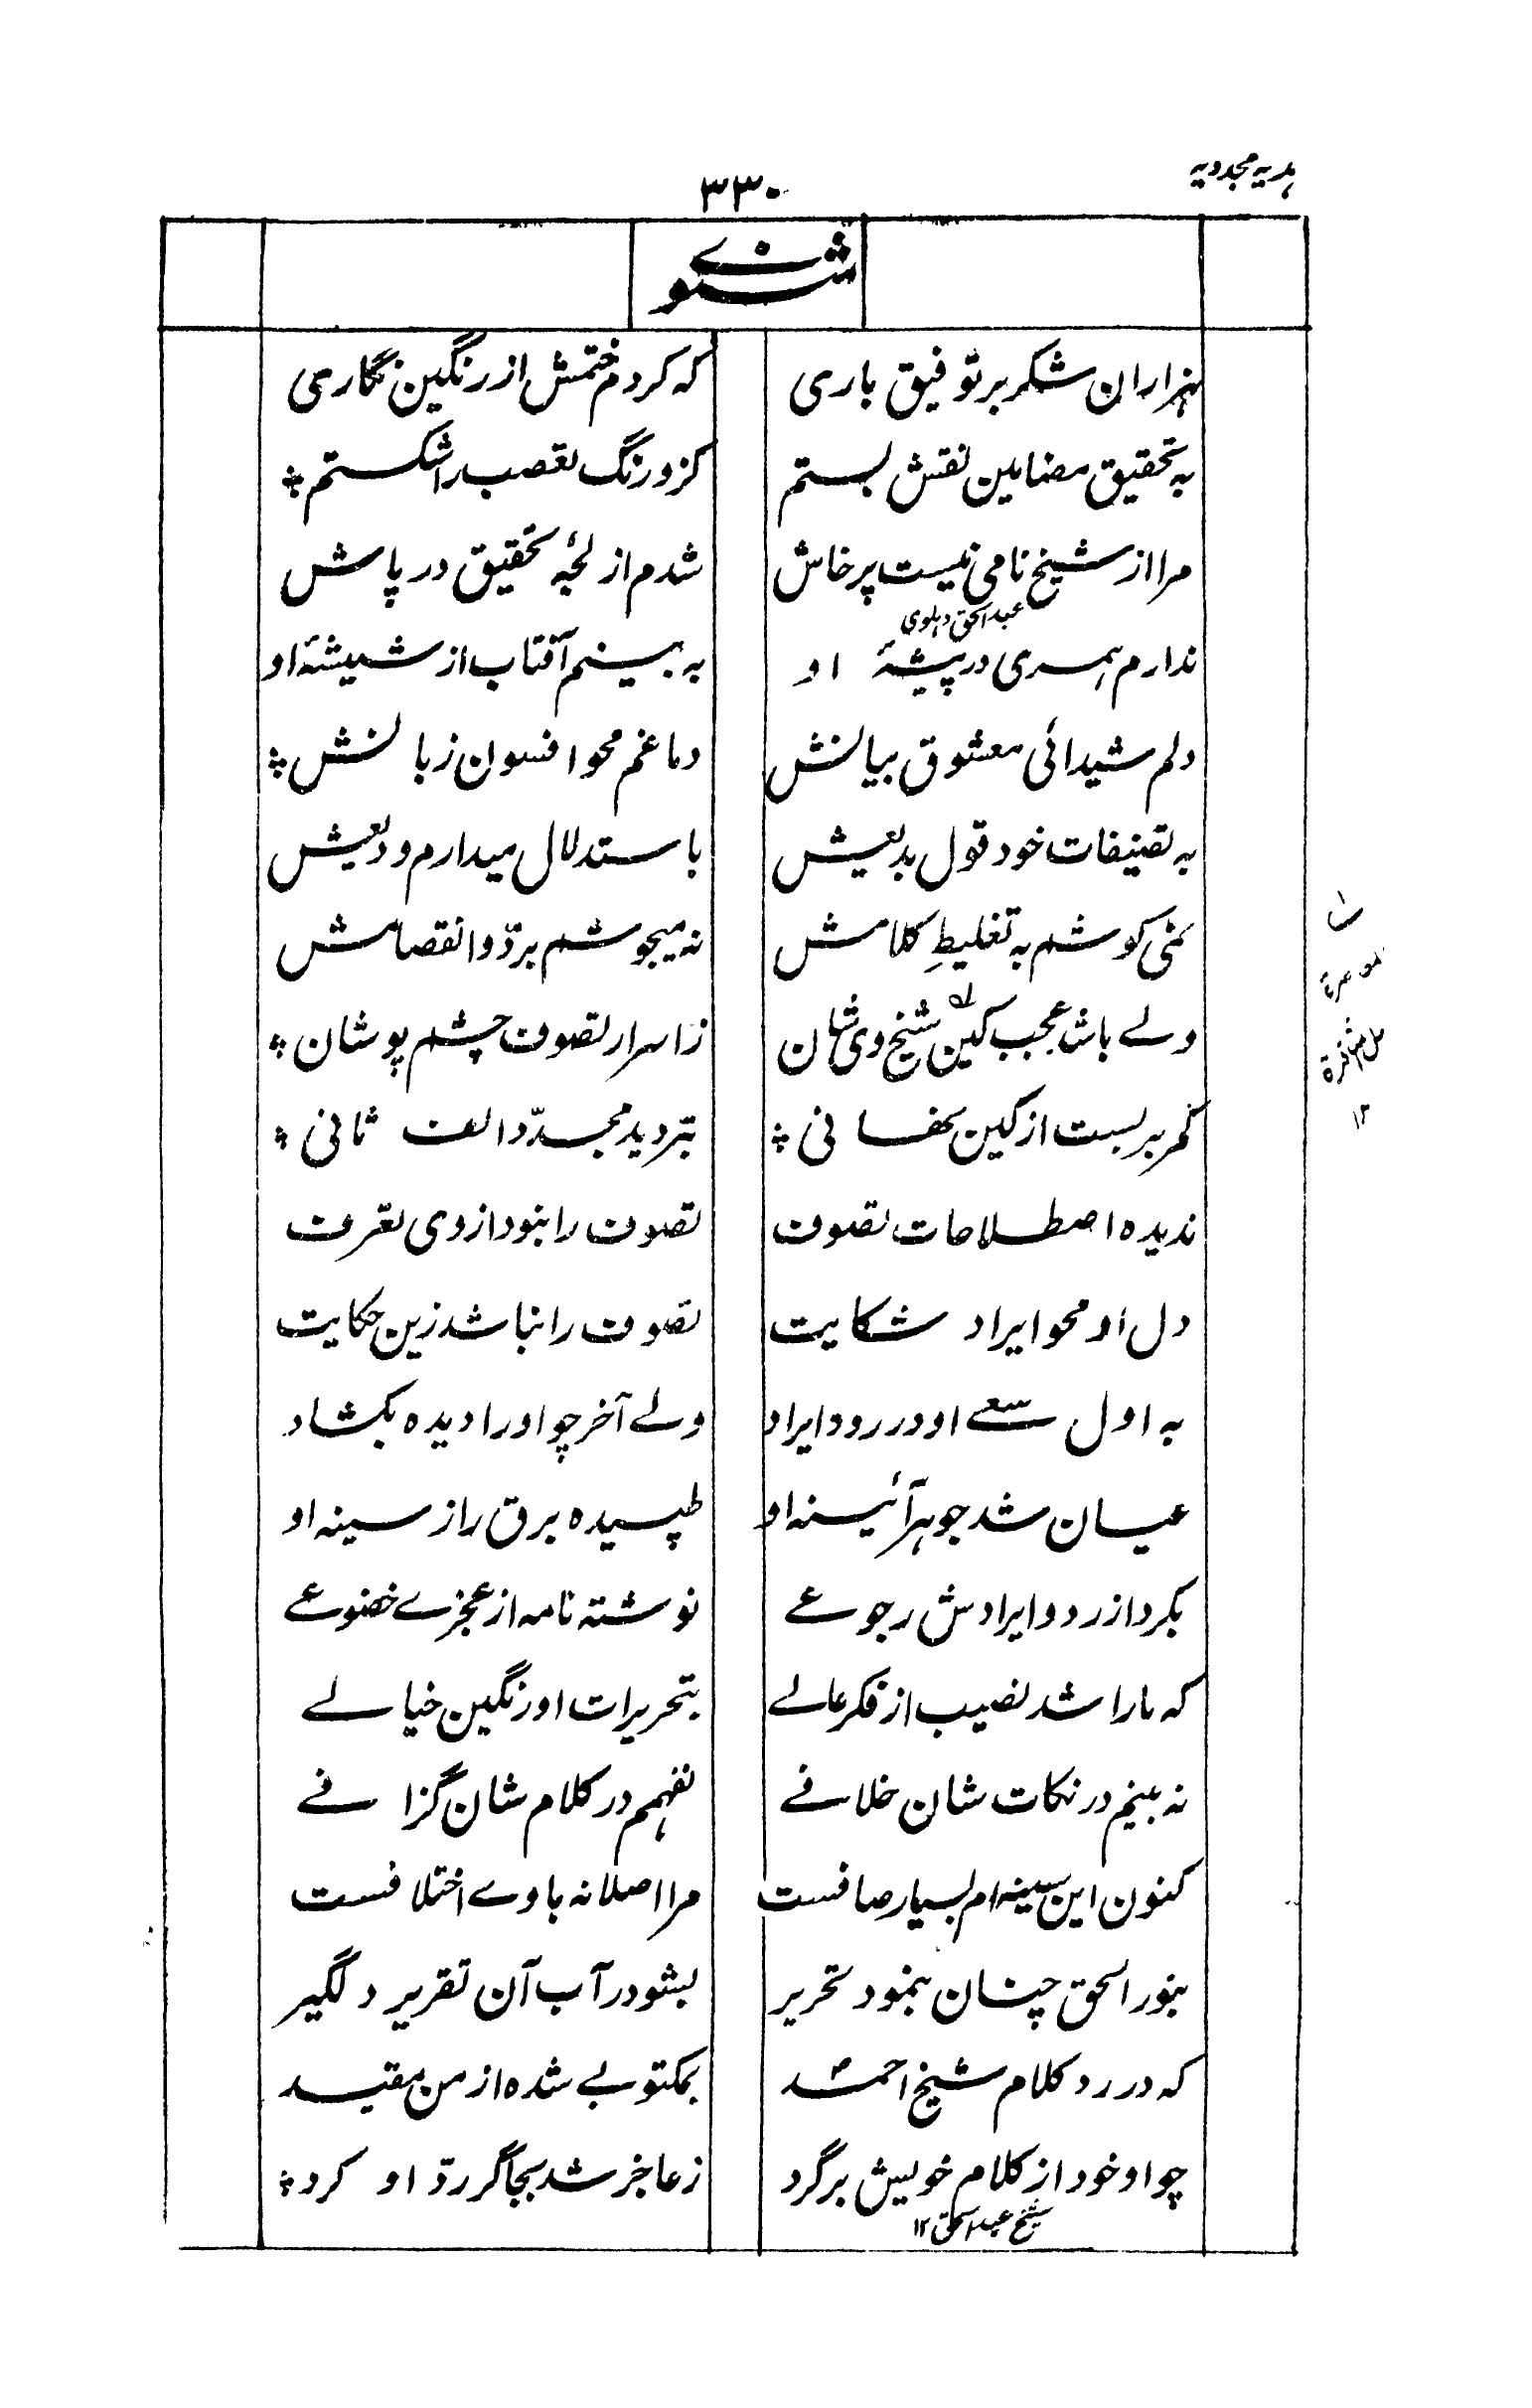 ہدیہ مجددیہ
۳۳۰
مثنوے
ہزاران شکر بر توفیق باری که کردم ختمش از رنگین نگاری
به تحقیق مضامین نقش بستم کزو رنگ تعصب را شکستم
مرا از شیخ نامی نیست پرخاش شدم از لجۂ تحقیق در پاش
عبدالحق دہلوی
ندارم ہمسری در پیشۂ او به بینم آفتاب از شیشۂ او
دلم شیدائی معشوق بیانش دماغم محو افسون زبانش
به تصنیفات خود قول بدیعش باستدلال میدارم ودیعش
نمی کوشم به تغلیطِ کلامش نه میجوشم بردّ و انفصامش
ولے باشد عجب کین شیخ ذی شان ز اسرار تصوف چشم پوشان
کمر بربست از کین نهانی بتردید مجدّد الف ثانی
ندیده اصطلاحات تصوف تصوف را نبود از وی تعرف
دل او محو ایراد شکایت تصوف را نباشد زین حکایت
به اول سعے او در رد و ایراد ولے آخر چو او را دیده بکشاد
عیان شد جوہر آئینه او طپیده برق راز سینه او
بکرد از رد و ایرادش رجوعے نوشته نامه از عجزے خضوعے
که ما را شد نصیب از فکر عالے بتحریرات او رنگین خیالے
نه بینم در نکات شان خلافے نفہم در کلام شان گزافے
کنون این سینه ام بسیار صافست مرا اصلا نه باوے اختلافست
بنور الحق چنان بنمود تحریر بشو در آب آن تقریر دلگیر
که در رد کلام شیخ احمد بمکتوبے شده از من مقید
چو او خود از کلام خویش برگرد ز عاخر شد بجا گر ردّ او کرد
شیخ عبدالحق ۱۲